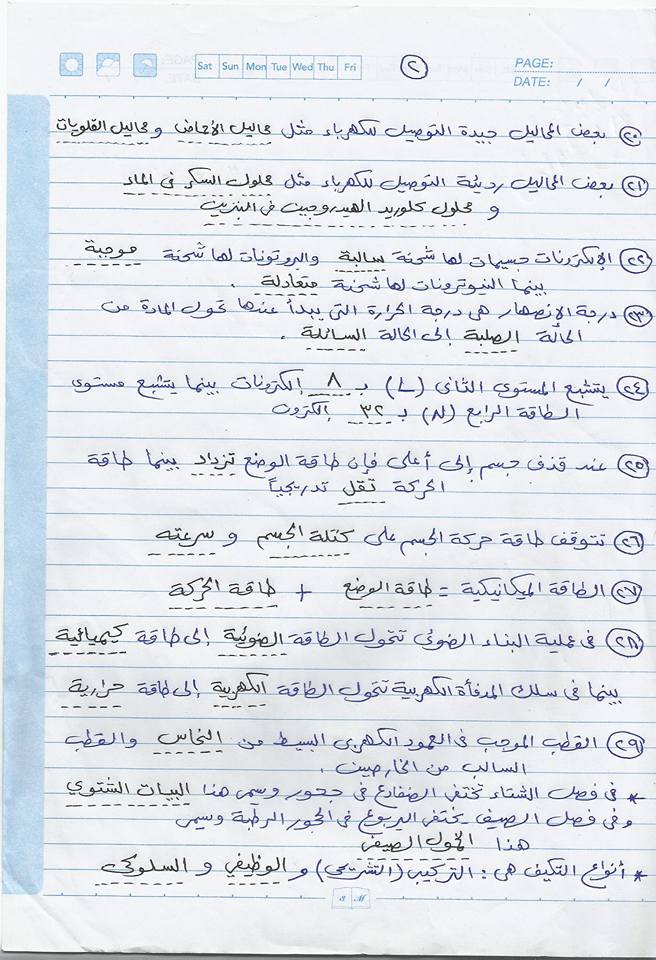 Sat Sun Mon Tue Wed Thu Fri
٢
PAGE:
DATE: / /
٢٠ بعض المحاليل جيدة التوصيل للكهرباء مثل محاليل الأحماض و محاليل القلويات
٢١ بعض المحاليل رديئة التوصيل للكهرباء مثل محلول السكر فى الماء
و محلول كلوريد الهيدروجين فى البنزين
٢٢ الإلكترونات جسيمات لها شحنة سالبة والبروتونات لها شحنة موجبة
بينما النيوترونات لها شحنة متعادلة .
٢٣ درجة الإنصهار هى درجة الحرارة التى يبدأ عندها تحول المادة من
الحالة الصلبة إلى الحالة السائلة .
٢٤ يتشبع المستوى الثانى (L) بـ ٨ إلكترونات بينما يتشبع مستوى
الطاقة الرابع (N) بـ ٣٢ إلكترون
٢٥ عند قذف جسم إلى أعلى فإن طاقة الوضع تزداد بينما طاقة
الحركة تقل تدريجياً
٢٦ تتوقف طاقة حركة الجسم على كتلة الجسم و سرعته
٢٧ الطاقة الميكانيكية = طاقة الوضع + طاقة الحركة
٢٨ فى عملية البناء الضوئى تتحول الطاقة الضوئية إلى طاقة كيميائية
بينما فى سلك المدفأة الكهربية تتحول الطاقة الكهربية إلى طاقة حرارية
٢٩ القطب الموجب فى العمود الكهربى البسيط من النحاس والقطب
السالب من الخارصين .
* فى فصل الشتاء تختفى الضفادع فى جحور ويسمى هذا البيات الشتوى
وفى فصل الصيف يختفى اليربوع فى الجحور الرطبة ويسمى
هذا الخمول الصيفى
* أنواع التكيف هى : التركيبى (التشريحى) و الوظيفى و السلوكى